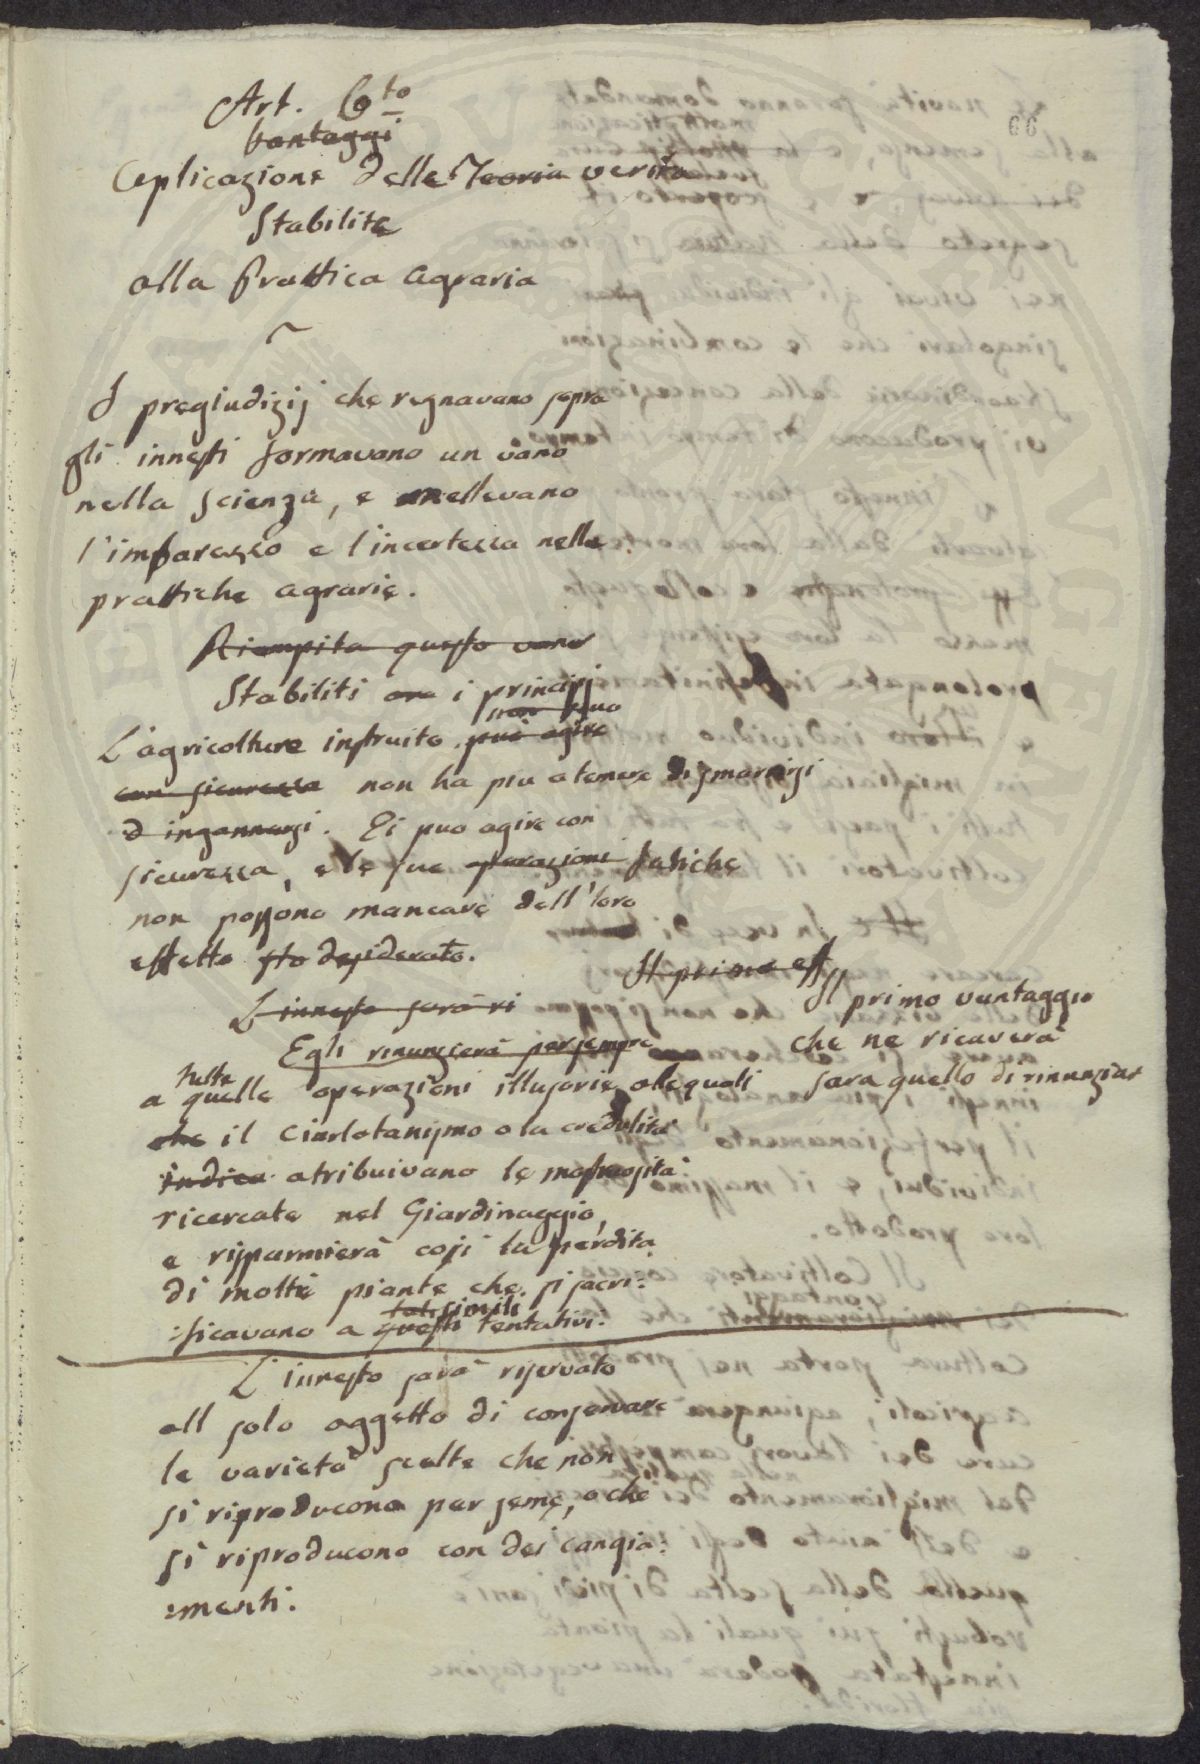 66
Art. 6to
Vantaggi
Applicazione delle Teoria verita
Stabilite
alla Prattica Agraria
I pregiudizij che regnavano sopra
gli innesti formavano un vano
nella scienza, e mettevano
l'imbarazzo e l'incertezza nelle
prattiche agrarie.
Riempita questo vano
Stabiliti ora i principj
non può
L'agricoltore instruito può agire
con sicurezza non ha piu a temere di smarirsi
d ingannarsi. Ei puo agire con
sicurezza, e le sue operazioni fatiche
non possono mancare dell'loro
effetto sto desiderato.
Il primo eff
L'innesto sarà ri
Il primo vantaggio
che ne ricaverà
sara quello di rinunziar
Egli rinunzierà persempre
tutte
a quelle operazioni illusorie alequali
che il Ciarlatanismo o la credulità
indica atribuivano le mostruosità
ricercate nel Giardinaggio,
e risparmierà cosi la perdita
di molte piante che si sacri:
tali simili
:ficavano a questi tentativi.
L'innesto sarà riservato
all solo oggetto di conservare
le varietà scelte che non
si riproducono per seme, o che
si riproducono con dei cangia:
:menti.